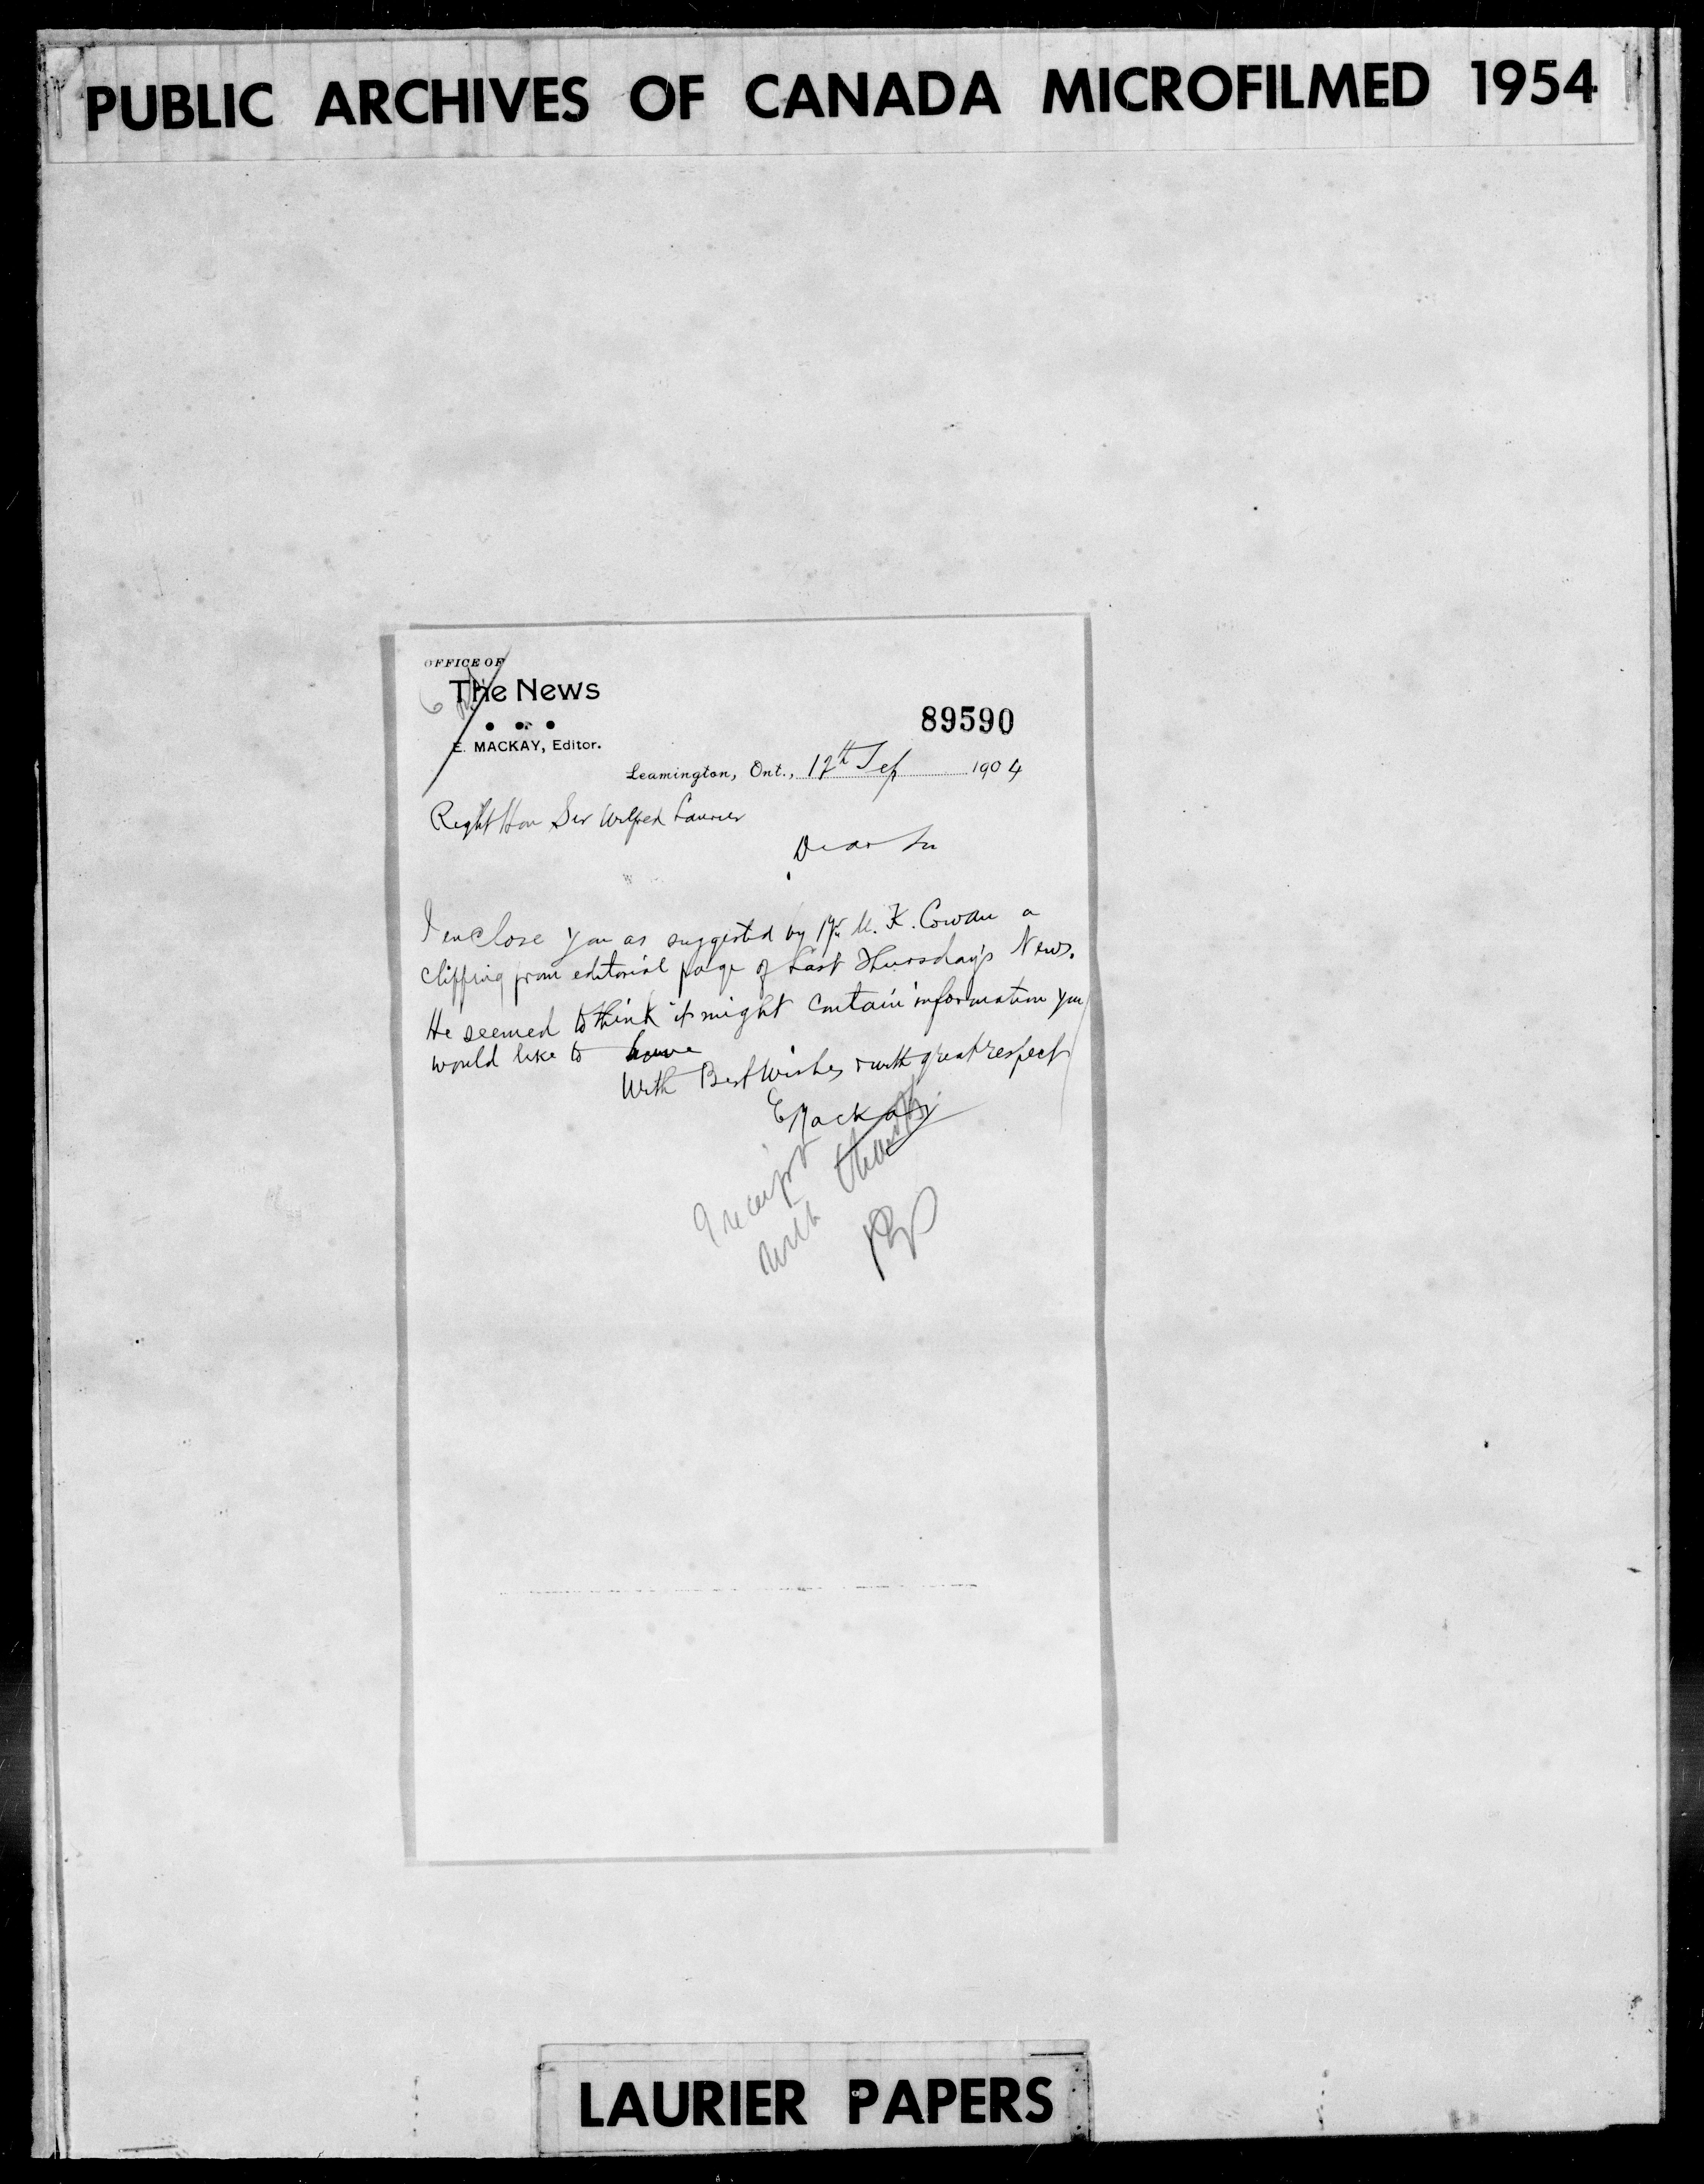 PUBLIC ARCHIVES OF CANADA MICROFILMED 1954
OFFICE OF
The News
E. MACKAY, Editor.
89590
Leamington, Ont., 12th Sep 1904
Right Hon Sir Wilfred Laurier
Dear Sir
I enclose you as suggested by Mr. M. K. Cowan a
clipping from editorial page of Last Thursday's News.
He seemed to think it might contain information you
would like to have
With Best Wishes & with great respect
E Mackay
receipt
with thanks
LAURIER PAPERS